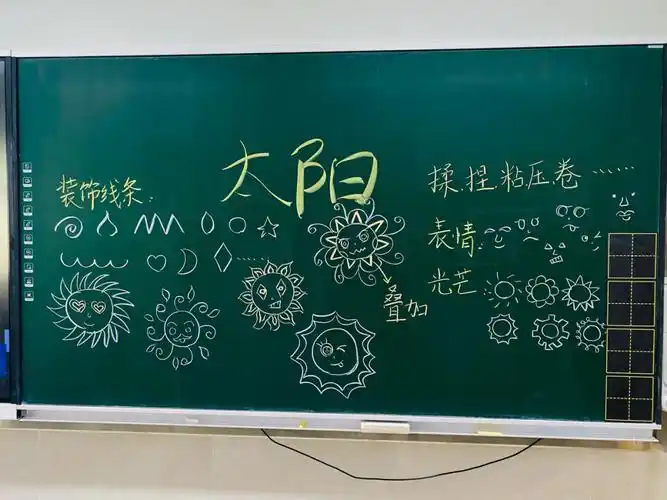 太阳
装饰线条：
揉.捏.粘.压.卷……
表情：
光芒
叠加